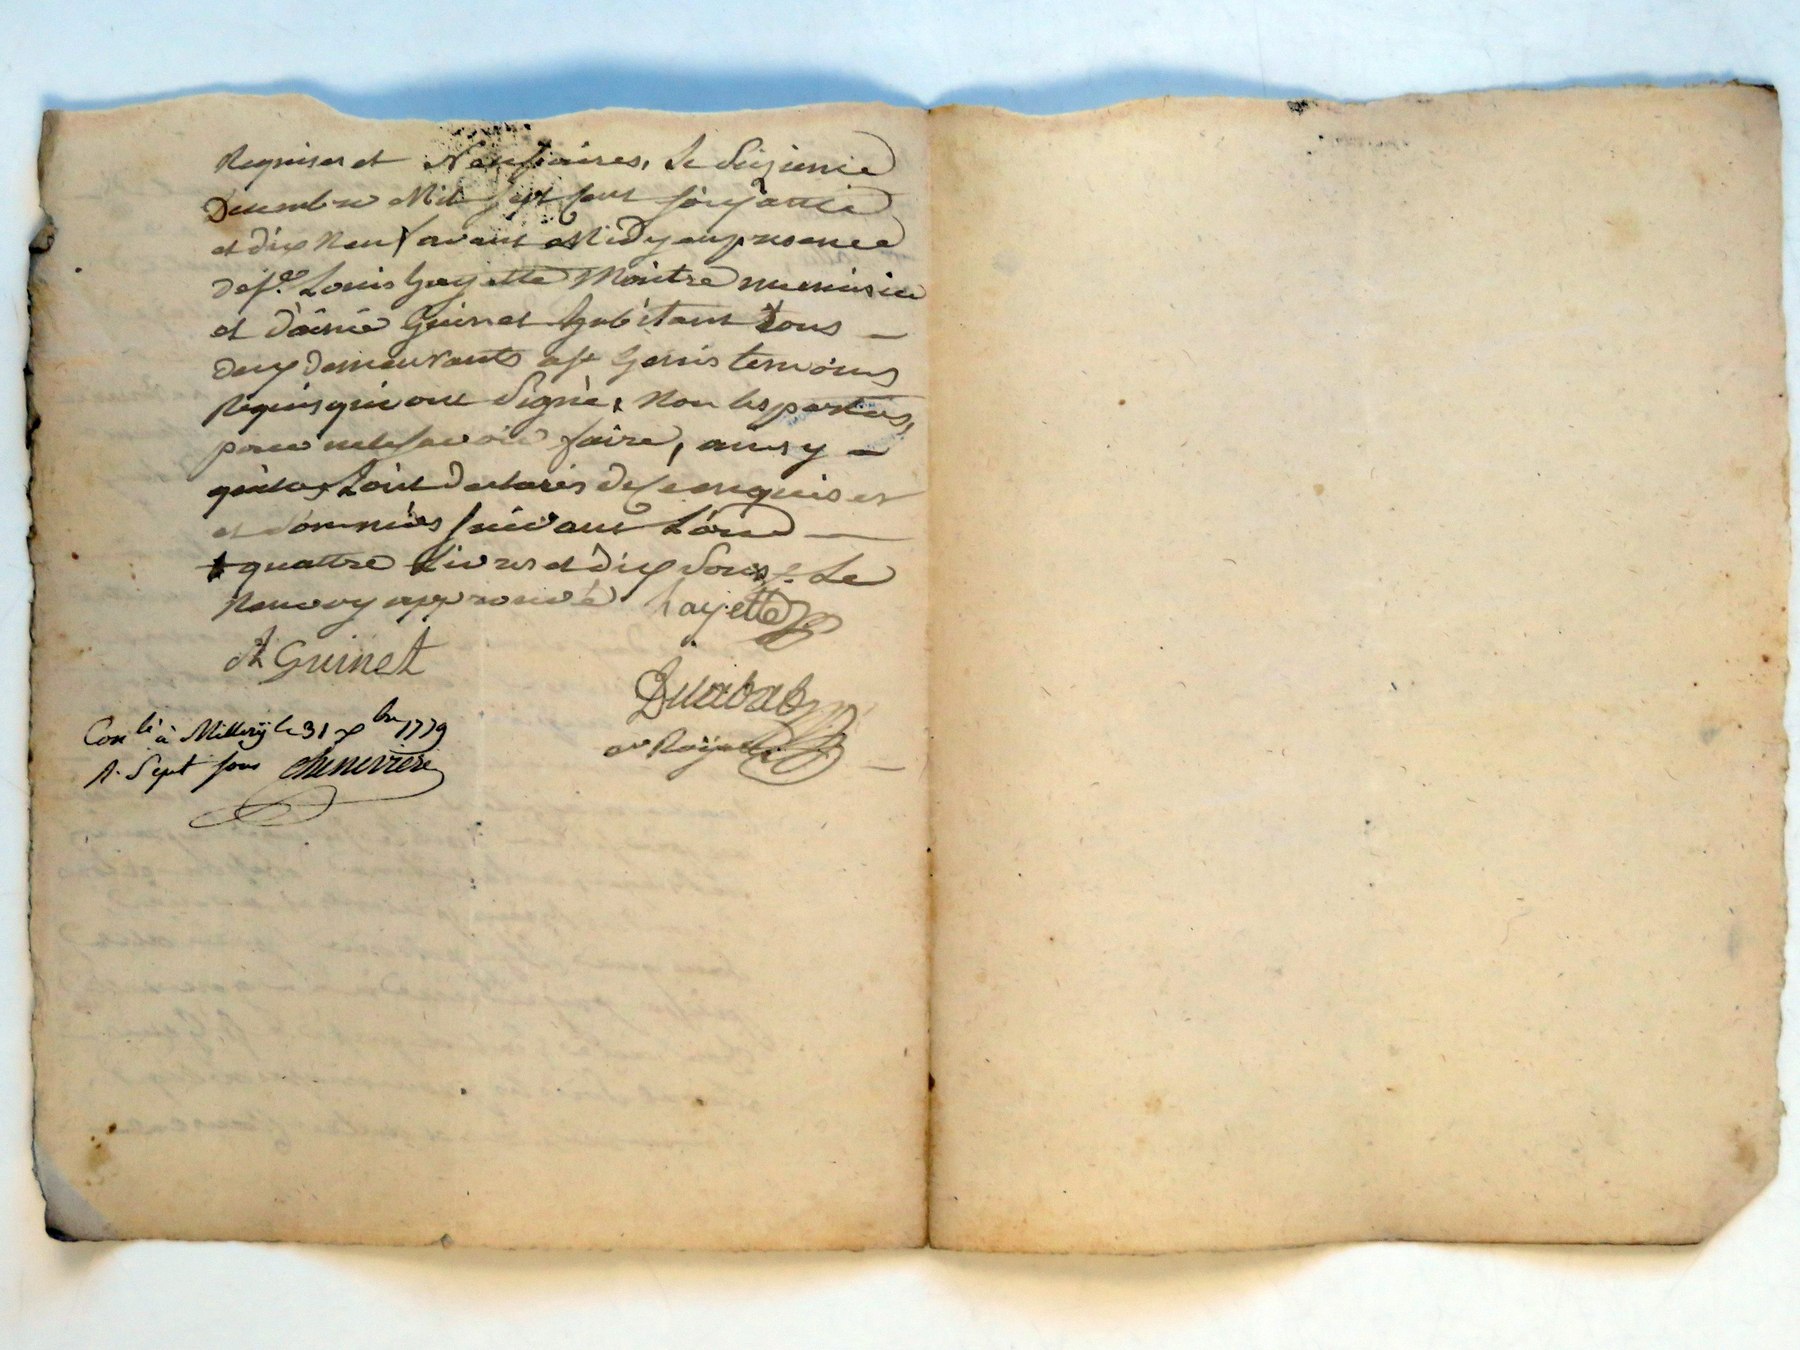 Requises et Necessaires, le Sizieme
Decembre Mil sept cent soixante
et dix neuf avant Midy en presence
de s.r Louis hayette Maitre menuisier
et d'aimé Guinet habitant tous —
deux demeurants a st Genis temoins
Requis qui ont Signé, non les parties,
pour ne le savoir faire, ainsy —
quelles l'ont declarés de ce enquises
et sommés suivant l'ord —
quattre Livres et dix Sous. Le
Renvoy approuvé hayette
A Guinet
Duabab
no.re Royal —
Con.lé à Millery le 31 xbre 1779
R. Sept sous chenevière